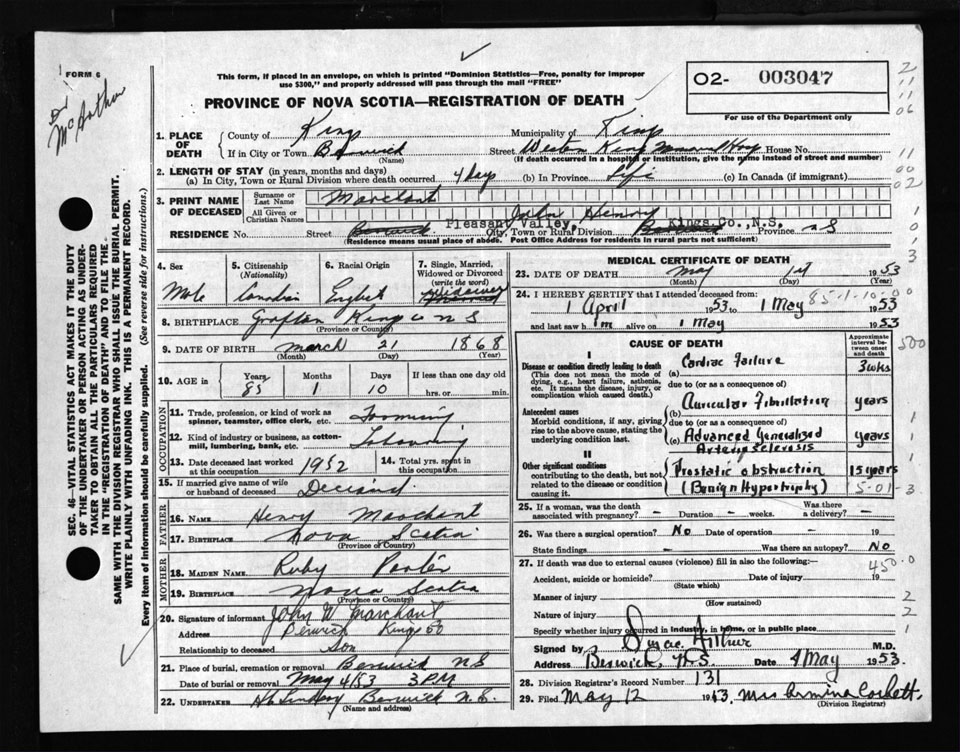 FORM 6
Dr McArthur
This form, if placed in an envelope, on which is printed "Dominion Statistics—Free, penalty for improper
use $300," and properly addressed will pass through the mail "FREE"
O2- 003047
For use of the Department only
PROVINCE OF NOVA SCOTIA—REGISTRATION OF DEATH
SEC. 46—VITAL STATISTICS ACT MAKES IT THE DUTY
OF THE UNDERTAKER OR PERSON ACTING AS UNDER-
TAKER TO OBTAIN ALL THE PARTICULARS REQUIRED
IN THE "REGISTRATION OF DEATH" AND TO FILE THE
SAME WITH THE DIVISION REGISTRAR WHO SHALL ISSUE THE BURIAL PERMIT.
WRITE PLAINLY WITH UNFADING INK. THIS IS A PERMANENT RECORD.
Every item of information should be carefully supplied. (See reverse side for instructions.)
1. PLACE OF DEATH
County of Kings Municipality of Kings
If in City or Town Berwick Street Western Kings Memorial Hosp House No.
(Name) (If death occurred in a hospital or institution, give the name instead of street and number)
2. LENGTH OF STAY (in years, months and days)
(a) In City, Town or Rural Division where death occurred 4 Days (b) In Province Life (c) In Canada (if immigrant)
3. PRINT NAME OF DECEASED
Surname or Last Name Marchant
All Given or Christian Names John Henry
RESIDENCE No. Street Berwick Pleasant Valley, Kings.Co.,N.S.
City, Town or Rural Division Province N S
(Residence means usual place of abode. Post Office Address for residents in rural parts not sufficient)
4. Sex Male
5. Citizenship (Nationality) Canadian
6. Racial Origin English
7. Single, Married, Widowed or Divorced (write the word) Widower Married
8. BIRTHPLACE Grafton Kings Co N S
(Province or Country)
9. DATE OF BIRTH March 21 1868
(Month) (Day) (Year)
10. AGE in Years 85 Months 1 Days 10 If less than one day old hrs. or min.
OCCUPATION
11. Trade, profession, or kind of work as spinner, teamster, office clerk, etc. Farming
12. Kind of industry or business, as cotton-mill, lumbering, bank, etc.
13. Date deceased last worked at this occupation 1952 14. Total yrs. spent in this occupation
15. If married give name of wife or husband of deceased Deceased
FATHER
16. NAME Henry Marchant
17. BIRTHPLACE Nova Scotia
(Province of Country)
MOTHER
18. MAIDEN NAME Ruby Porter
19. BIRTHPLACE Nova Scotia
(Province or Country)
20. Signature of informant John W Marchant
Address Berwick Kings Co
Relationship to deceased Son
21. Place of burial, cremation or removal Berwick N S
Date of burial or removal May 4/53 3 PM
22. UNDERTAKER Lindsay Berwick N.S.
(Name and address)
MEDICAL CERTIFICATE OF DEATH
23. DATE OF DEATH May 1st 1953
(Month) (Day) (Year)
24. I HEREBY CERTIFY that I attended deceased from:
1 April 1953 to 1 May 1953
85-1-10-00
and last saw him alive on 1 May 1953
CAUSE OF DEATH
Approximate interval between onset and death
I
Disease or condition directly leading to death
(This does not mean the mode of dying, e.g., heart failure, asthenia, etc. It means the disease, injury, or complication which caused death.)
(a) Cardiac Failure 3 wks
due to (or as a consequence of)
Antecedent causes
Morbid conditions, if any, giving rise to the above cause, stating the underlying condition last.
(b) Auricular Fibrillation years
due to (or as a consequence of)
(c) Advanced Generalized Arteriosclerosis years
II
Other significant conditions
contributing to the death, but not related to the disease or condition causing it.
Prostatic obstruction 15 years
(Benign Hypertrophy) 5-01-3
25. If a woman, was the death associated with pregnancy? – Duration – weeks. Was there a delivery? –
26. Was there a surgical operation? No Date of operation – 19
State findings – Was there an autopsy? No
27. If death was due to external causes (violence) fill in also the following:—
450-0
Accident, suicide or homicide? Date of injury 19
(State which)
Manner of injury
(How sustained)
Nature of injury
Specify whether injury occurred in industry, in home, or in public place
Signed by M.D.
Address Berwick, N.S. Date 4 May 1953.
28. Division Registrar's Record Number 131
29. Filed May 12 1953 Mrs Armina Corbett.
(Division Registrar)